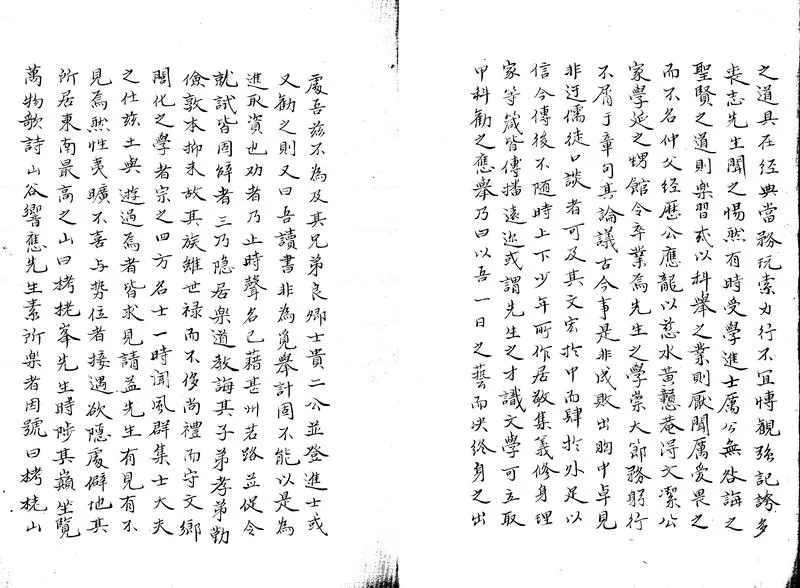 之道具在经典當務玩索力行不宜博觀强記誇多
丧志先生聞之惕然有時受學進士厲公無咎誨之
聖賢之道則楽習或以科舉之業則厭聞厲爱畏之
而不名仲父经歴公應龍以慈水黄戇菴淂文潔公
家學延之甥館令卒業為先生之學崇大節務躬行
不屑于章句其論議古今事是非成敗出胸中卓見
非迂儒徒口談者可及其文宏於中而肆於外足以
信今傳後不随時上下少年所作居敬集義修身理
家等箴皆傳播遠迩或謂先生之才識文學可立取
甲科勸之應舉乃曰以吾一日之藝而决终身之出
處吾兹不為及其兄弟良卿士貴二公並登進士或
又勸之則又曰吾讀書非為覓舉計固不能以是為
進取資也劝者乃止時聲名已藉甚州若路並促令
就試皆固辭者三乃隐居楽道教誨其子弟孝弟勤
儉敦本抑末故其族雖世禄而不侈尚禮而守文鄉
閭化之學者宗之四方名士一時闻風群集士大夫
之仕兹土與遊過焉者皆求見請益先生有見有不
見焉然性夷曠不喜与势位者接遇欲隠處僻地其
所居東南最高之山曰栲栳峯先生時陟其巔坐覧
萬物歌詩山谷響應先生素所楽者因號曰栲栳山